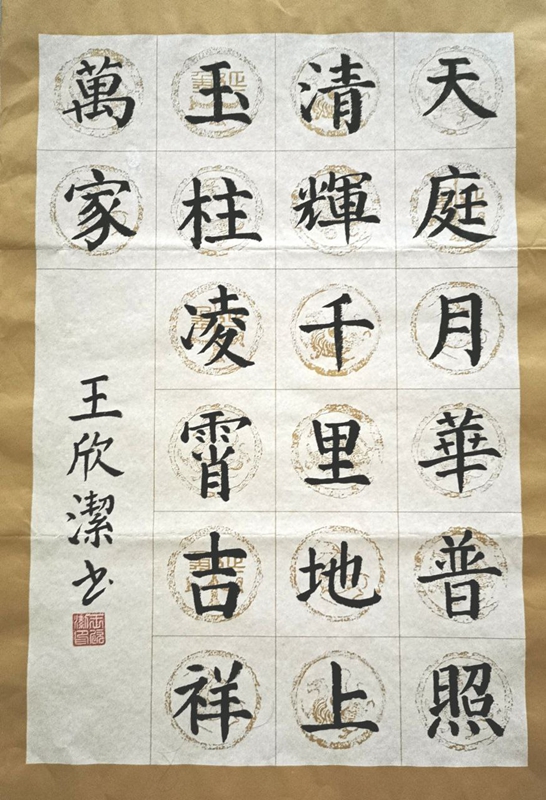 天庭月華普照
清輝千里地上
玉柱凌霄吉祥
萬家
王欣潔书